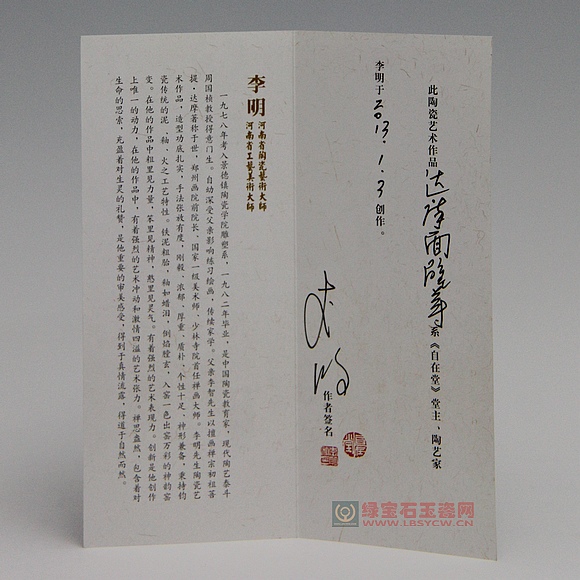 此陶瓷艺术作品达摩面壁等系《自在堂》堂主、陶艺家
李明于2013.1.3创作。
李明
作者签名
李明
河南省陶瓷艺术大师
河南省工艺美术大师
一九七八年考入景德镇陶瓷学院雕塑系，一九八二年毕业，是中国陶瓷教育家，现代陶艺泰斗
周国桢教授得意门生。自幼深受父亲影响练习绘画，传续家学。父亲李智先生以擅画禅宗初祖菩
提·达摩著称于世，郑州画院前院长、国家一级美术师、少林寺院首任禅画大师。李明先生陶瓷艺
术作品，造型功底扎实，手法张放有度，刚毅、浓郁、厚重、质朴、个性十足、神形兼备，秉持钧
瓷传统的泥、釉、火之工艺特性。铁泥粗胎，釉如蜡泪，倒焰膛玄、入窑一色出窑万彩的神韵窑
变。在他的作品中粗里见力量，笨里见精神，憨里见灵气。有着强烈的艺术表现力。创新是他创作
上唯一的动力，在他的作品中，有着强烈的艺术冲动和激情四溢的艺术张力。禅思盎然，包含着对
生命的思索，充盈着对生灵的礼赞，是他重要的审美感受，得到于真情流露，得道于自然而然。
绿宝石玉瓷网
WWW.LBSYCW.CN